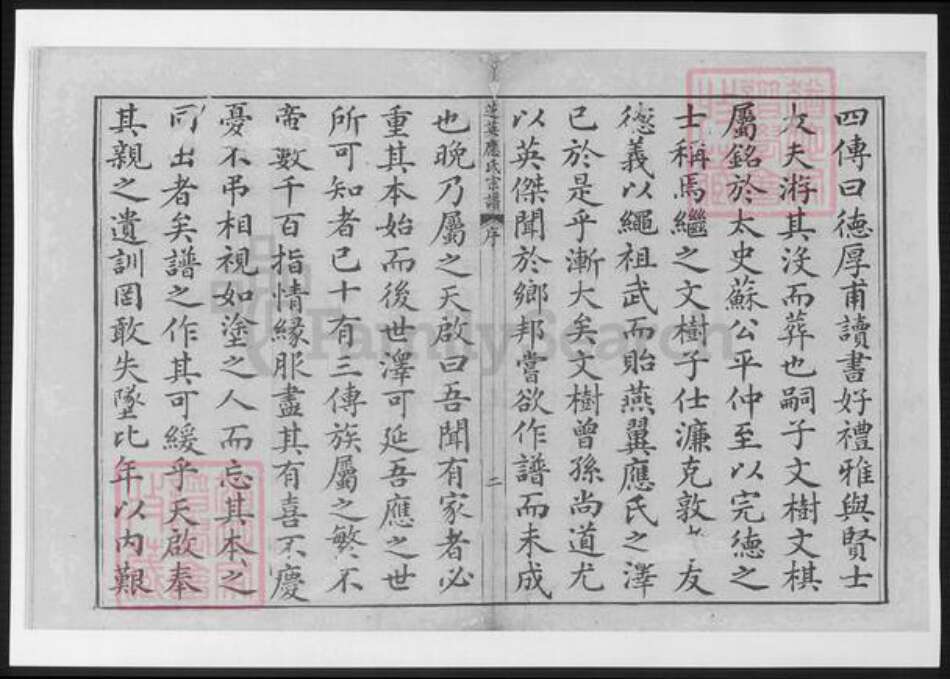 四傳曰德厚甫讀書好禮雅與賢士
大夫游其沒而葬也嗣子文樹文棋
屬銘於太史蘇公平仲至以完德之
士稱焉繼之文樹子仕濂克敦 友
德義以繩祖武而貽燕翼應氏之澤
已於是乎漸大矣文樹曾孫尚道尤
以英傑聞於鄉邦嘗欲作譜而未成
芝英應氏宗譜 序 二
也晚乃屬之天啟曰吾聞有家者必
重其本始而後世澤可延吾應之世
所可知者已十有三傳族屬之繁不
帝數千百指情緣服盡其有喜不慶
憂不弔相視如塗之人而忘其本之
同出者矣譜之作其可緩乎天啟奉
其親之遺訓罔敢失墜比年以內艱
FamilySearch